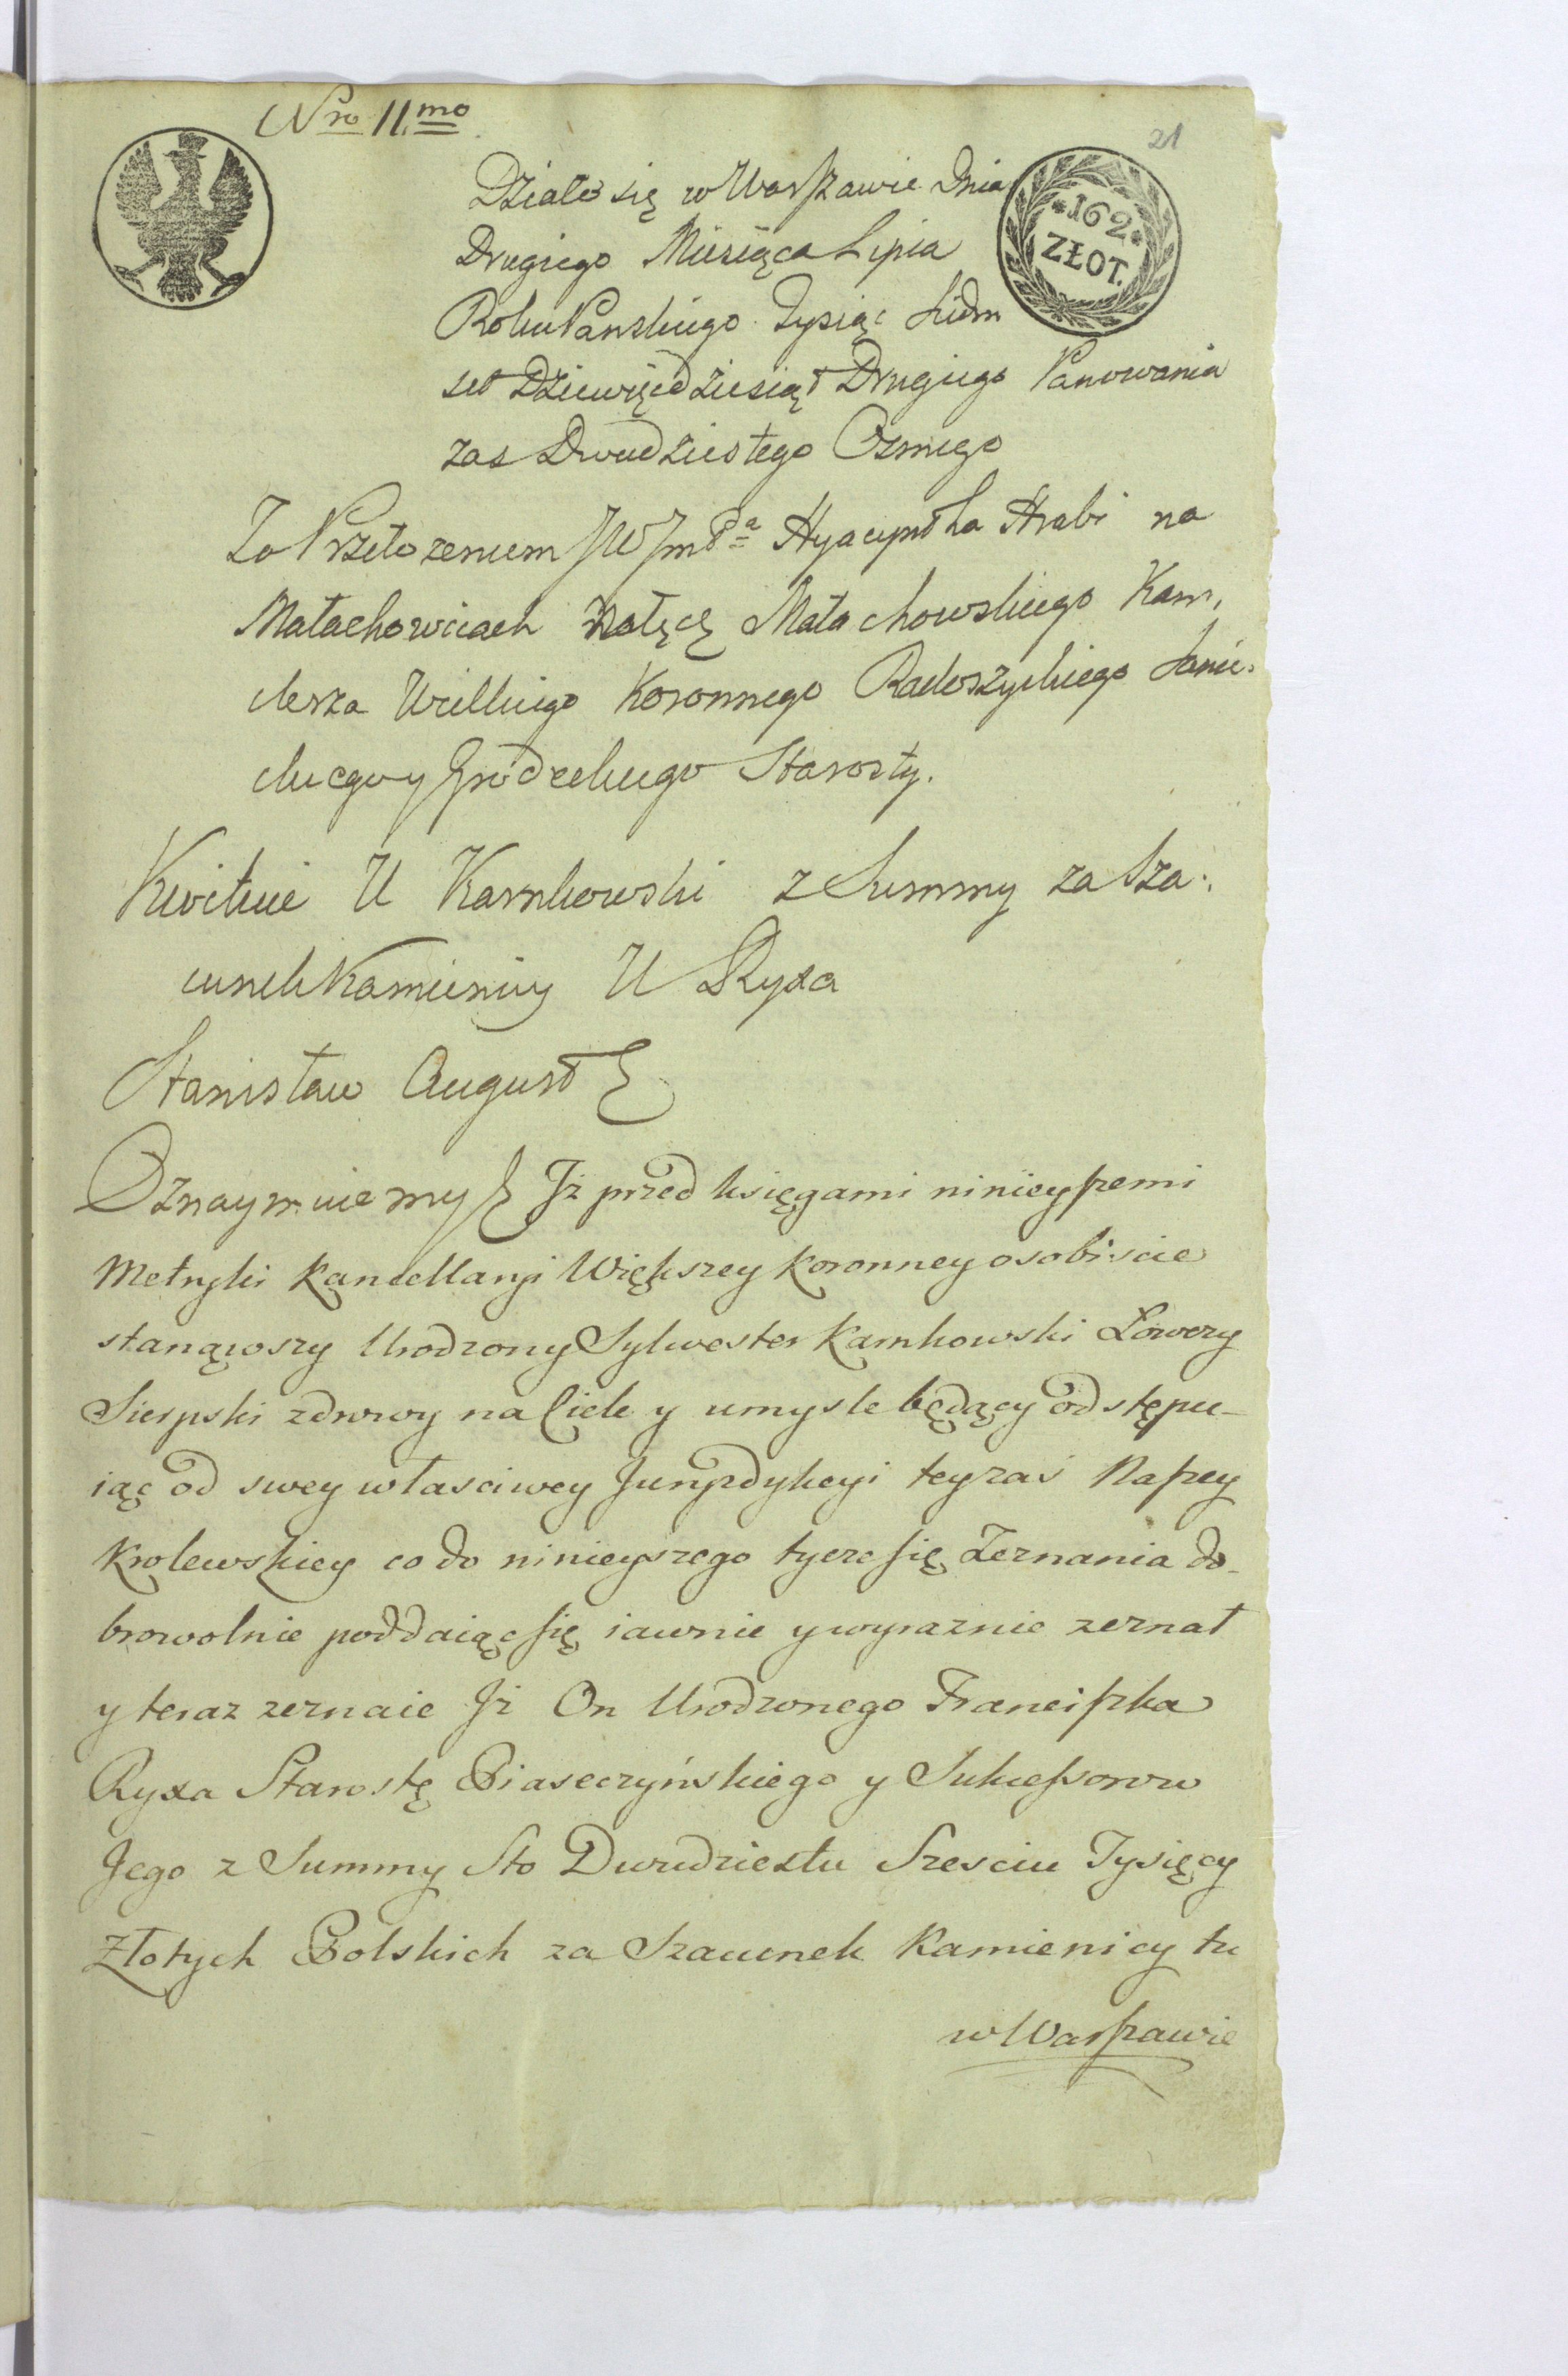 Nro 11.mo
21
*162*
ZŁOT.
Działo się w Warszawie Dnia
Drugiego Miesiąca Lipia
Roku Panskiego Tysiąc Siedm
set Dziewięcdziesiąt Drugiego Panowania
zas Dwudziestego Osmego
Za Przełozeniem JW Jm Pa Hyacyntha Hrabi na
Małachowicach Nałęcz Małachowskiego Kan,
clerza Wielkiego Koronnego Radoszyckiego Sani-
ckiego y Grodeckiego Starosty.
Kwituie U Karnkowski z Summy za Sza-
cunek Kamienicy U Ryxa
Stanisław August
Oznaymuiemy Jż przed księgami ninieyszemi
Metryki Kancellaryi Większey Koronney osobiscie
stanąwszy Urodzony Sylwester Karnkowski Łowczy
Sierpski zdrowy na Ciele y umysle będący odstępu-
iąc od swey własciwey Juryzdykcyi tey zaś Naszey
Krolewskiey co do ninieyszego tycze się Zeznania do-
browolnie poddaiąc się iawnie y wyraznie zeznał
y teraz zeznaie Jż On Urodzonego Franciszka
Ryxa Starostę Piaseczyńskiego y Sukcessorow
Jego z Summy Sto Dwudziestu Szesciu Tysięcy
Złotych Polskich za Szacunek Kamienicy tu
w Warszawie